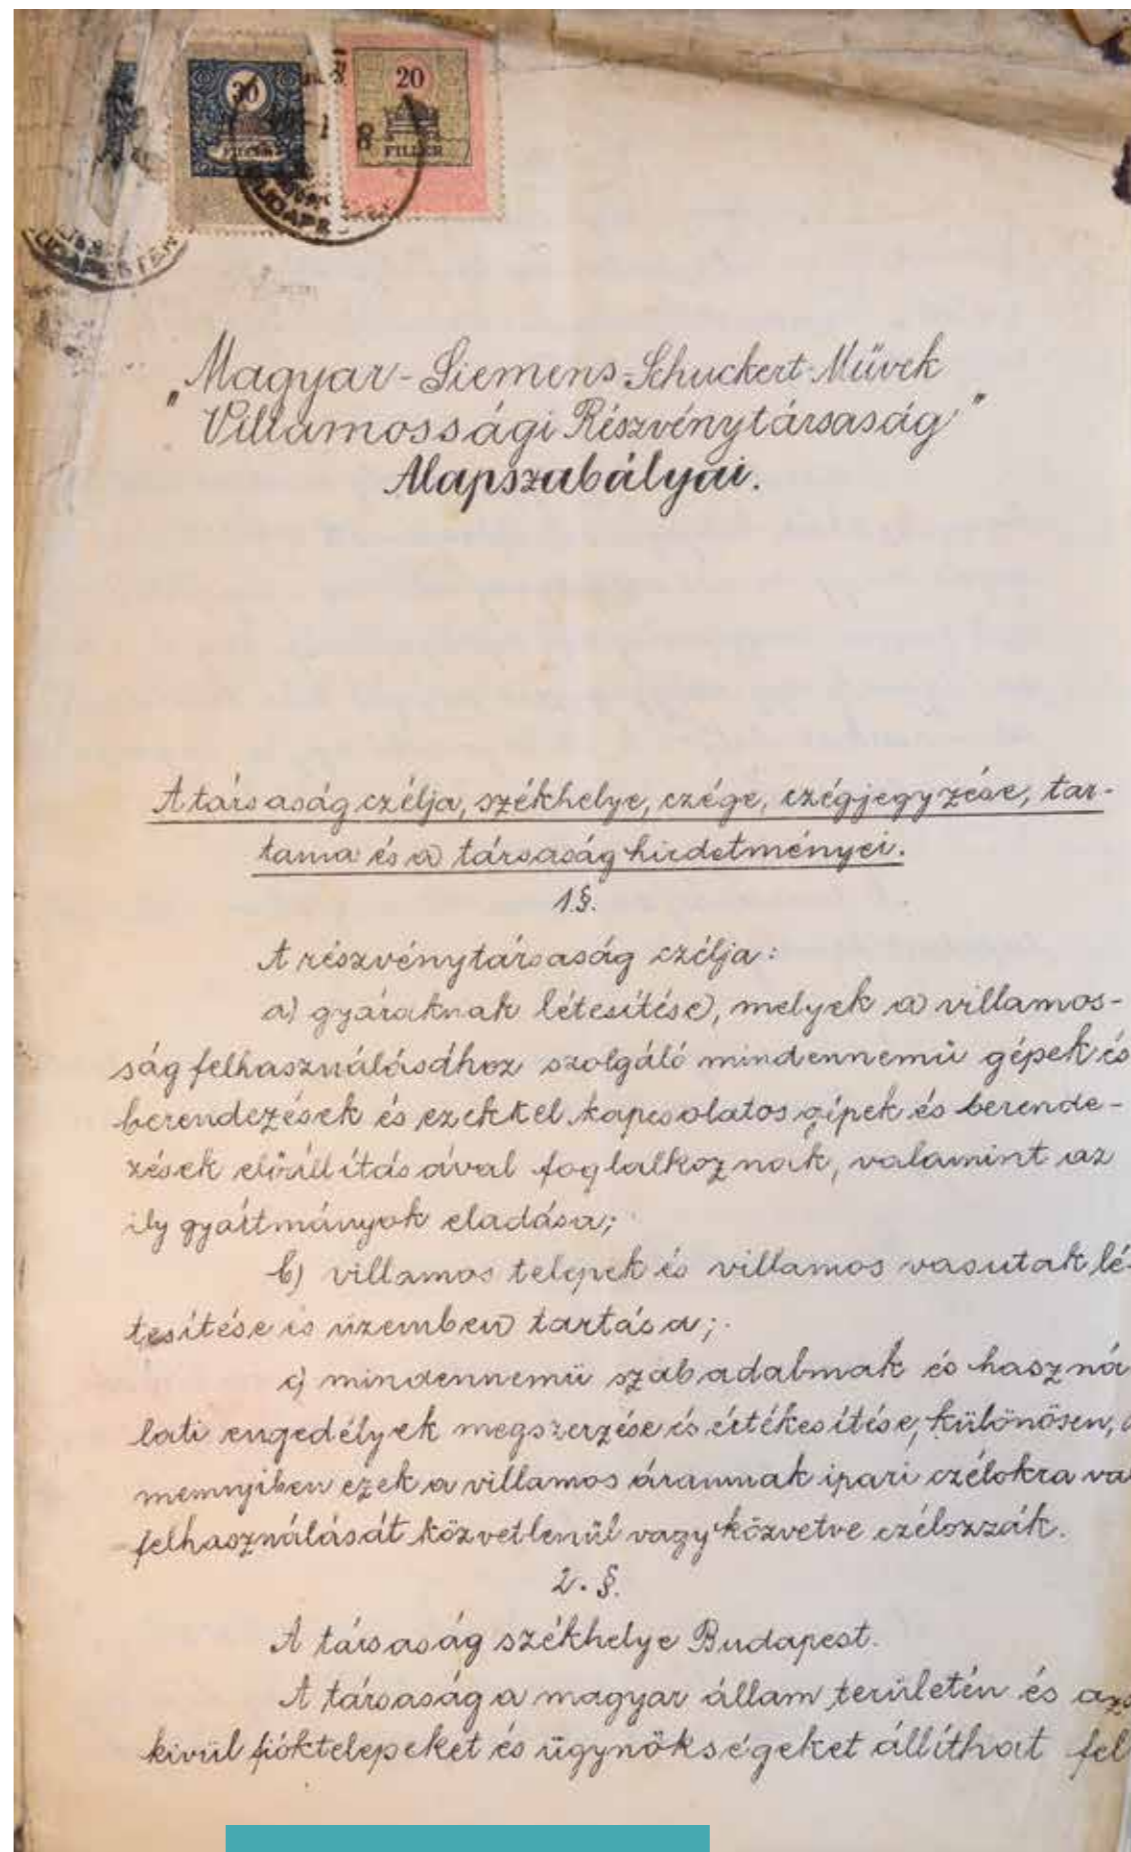 30
FILLÉR
20
FILLÉR
BUDAPEST
BUDAPE
„Magyar-Siemens-Schuckert-Művek
Villamossági Részvénytársaság”
Alapszabályai.
A társaság czélja, székhelye, czége, czégjegyzése, tar-
tama és a társaság hirdetményei.
1.§.
A részvénytársaság czélja:
a) gyáraknak létesítése, melyek a villamos-
ság felhasználásához szolgáló mindennemü gépek és
berendezések és ezekkel kapcsolatos gépek és berende-
zések előállításával foglalkoznak, valamint az
ily gyártmányok eladása;
b) villamos telepek és villamos vasutak lé-
tesítése és üzemben tartása;
c) mindennemü szabadalmak és haszná
lati engedélyek megszerzése és értékesítése, különösen, a
mennyiben ezek a villamos áramnak ipari czélokra va
felhasználását közvetlenül vagy közvetve czélozzák.
2.§.
A társaság székhelye Budapest.
A társaság a magyar állam területén és azo
kivül fióktelepeket és ügynökségeket állíthat fel